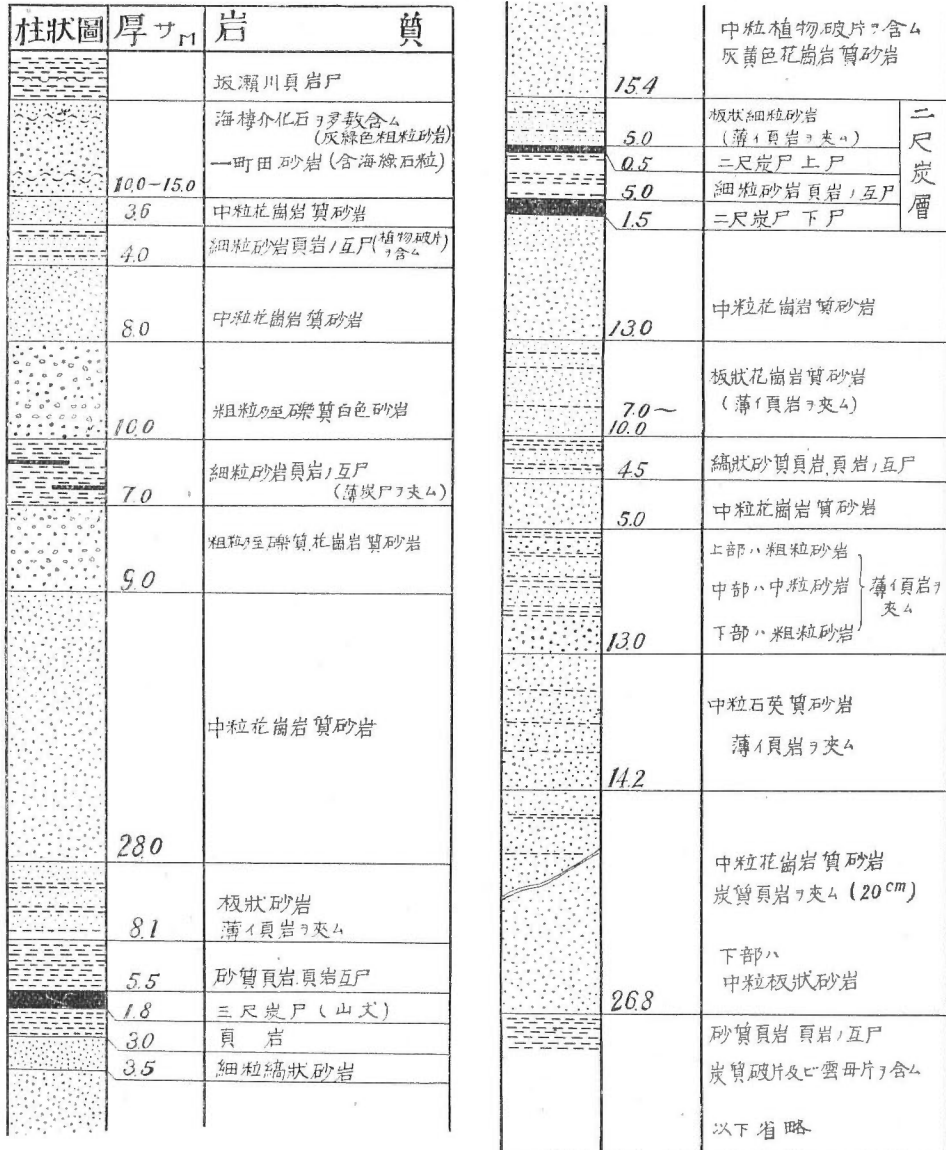 柱狀圖 厚サM 岩 質
坂瀬川頁岩尸
海棲介化石ヲ多数含ム
(灰緑色粗粒砂岩)
10.0-15.0 一町田砂岩(含海緑石粒)
3.6 中粒花崗岩質砂岩
4.0 細粒砂岩頁岩ノ互尸(植物破片ヲ含ム)
8.0 中粒花崗岩質砂岩
10.0 粗粒乃至礫質白色砂岩
7.0 細粒砂岩頁岩ノ互尸
(薄炭尸ヲ夾ム)
9.0 粗粒乃至礫質花崗岩質砂岩
28.0 中粒花崗岩質砂岩
8.1 板状砂岩
薄イ頁岩ヲ夾ム
5.5 砂質頁岩.頁岩互尸
1.8 三尺炭尸(山丈)
3.0 頁 岩
3.5 細粒縞状砂岩
中粒植物破片ヲ含ム
灰黄色花崗岩質砂岩
15.4
二尺炭層
5.0 板状細粒砂岩
(薄イ頁岩ヲ夾ム)
0.5 二尺炭尸上尸
5.0 細粒砂岩頁岩ノ互尸
1.5 二尺炭尸 下尸
13.0 中粒花崗岩質砂岩
7.0~10.0 板狀花崗岩質砂岩
(薄イ頁岩ヲ夾ム)
4.5 縞狀砂質頁岩.頁岩ノ互尸
5.0 中粒花崗岩質砂岩
上部ハ粗粒砂岩
中部ハ中粒砂岩 薄イ頁岩ヲ夾ム
13.0 下部ハ粗粒砂岩
中粒石英質砂岩
薄イ頁岩ヲ夾ム
14.2
中粒花崗岩質砂岩
炭質頁岩ヲ夾ム(20cm)
下部ハ
中粒板状砂岩
26.8
砂質頁岩 頁岩ノ互尸
炭質破片及ビ雲母片ヲ含ム
以下省略